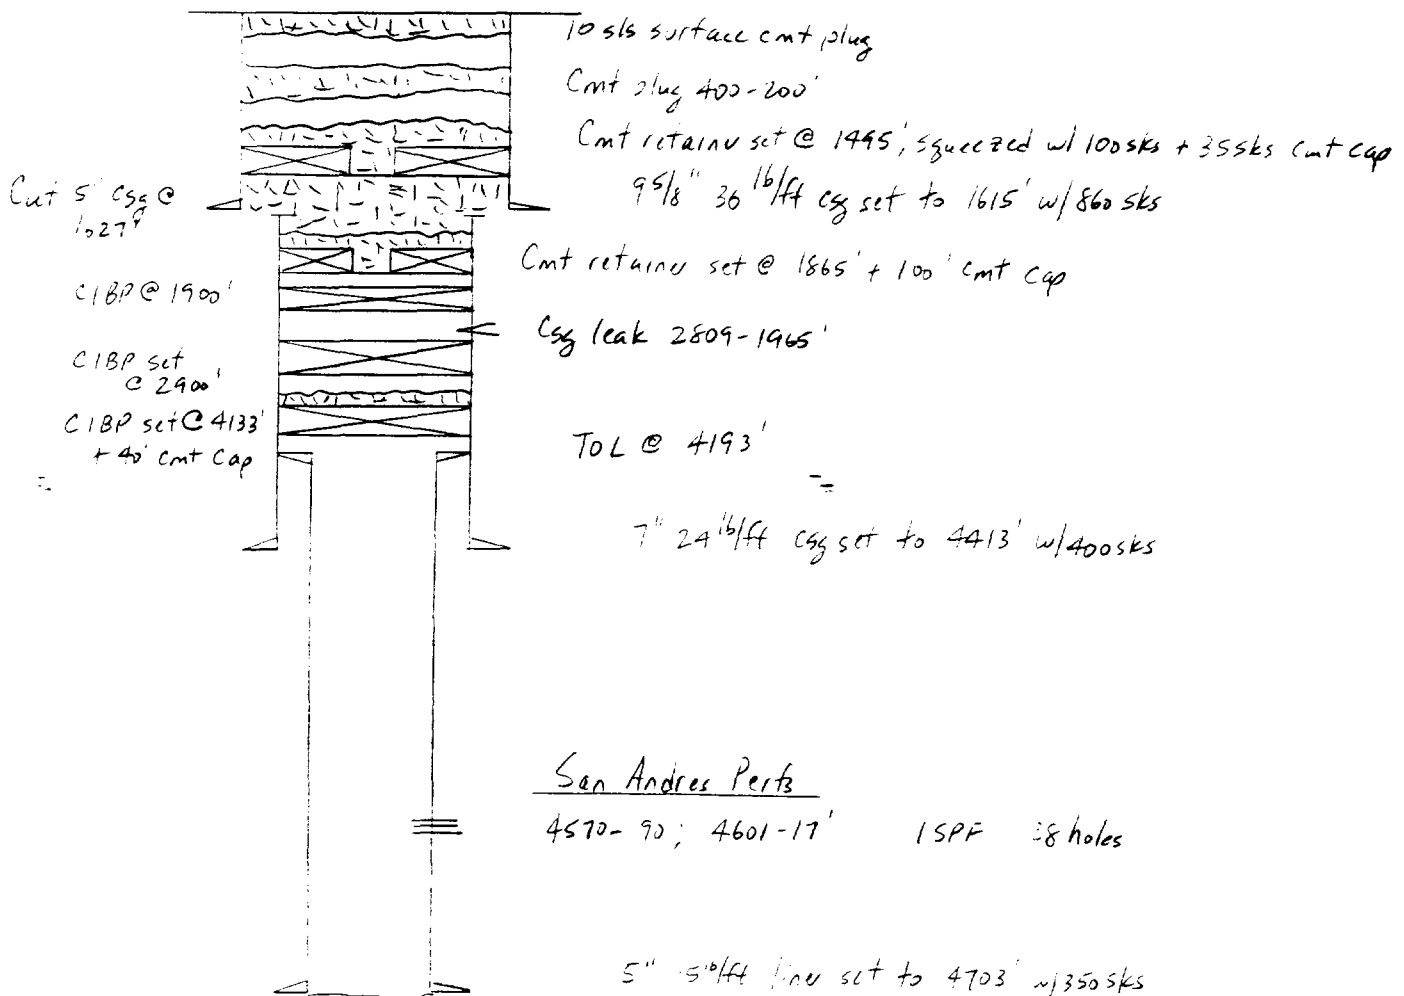 10 sks surface cmt plug
Cmt plug 400-200'
Cmt retainer set @ 1495', squeezed w/ 100 sks + 35 sks cmt cap
9 5/8" 36 lb/ft csg set to 1615' w/ 860 sks
Cut 5" csg @
Cmt retainer set @ 1865' + 100' cmt cap
CIBP @ 1900'
Csg leak 2809-1965'
CIBP set
@ 2900'
CIBP set @ 4133'
+ 40' cmt cap
TOL @ 4193'
7" 24 lb/ft csg set to 4413' w/ 400 sks
San Andres Perfs
4570-90; 4601-17' 1 SPF holes
5" liner set to 4703' w/ 350 sks